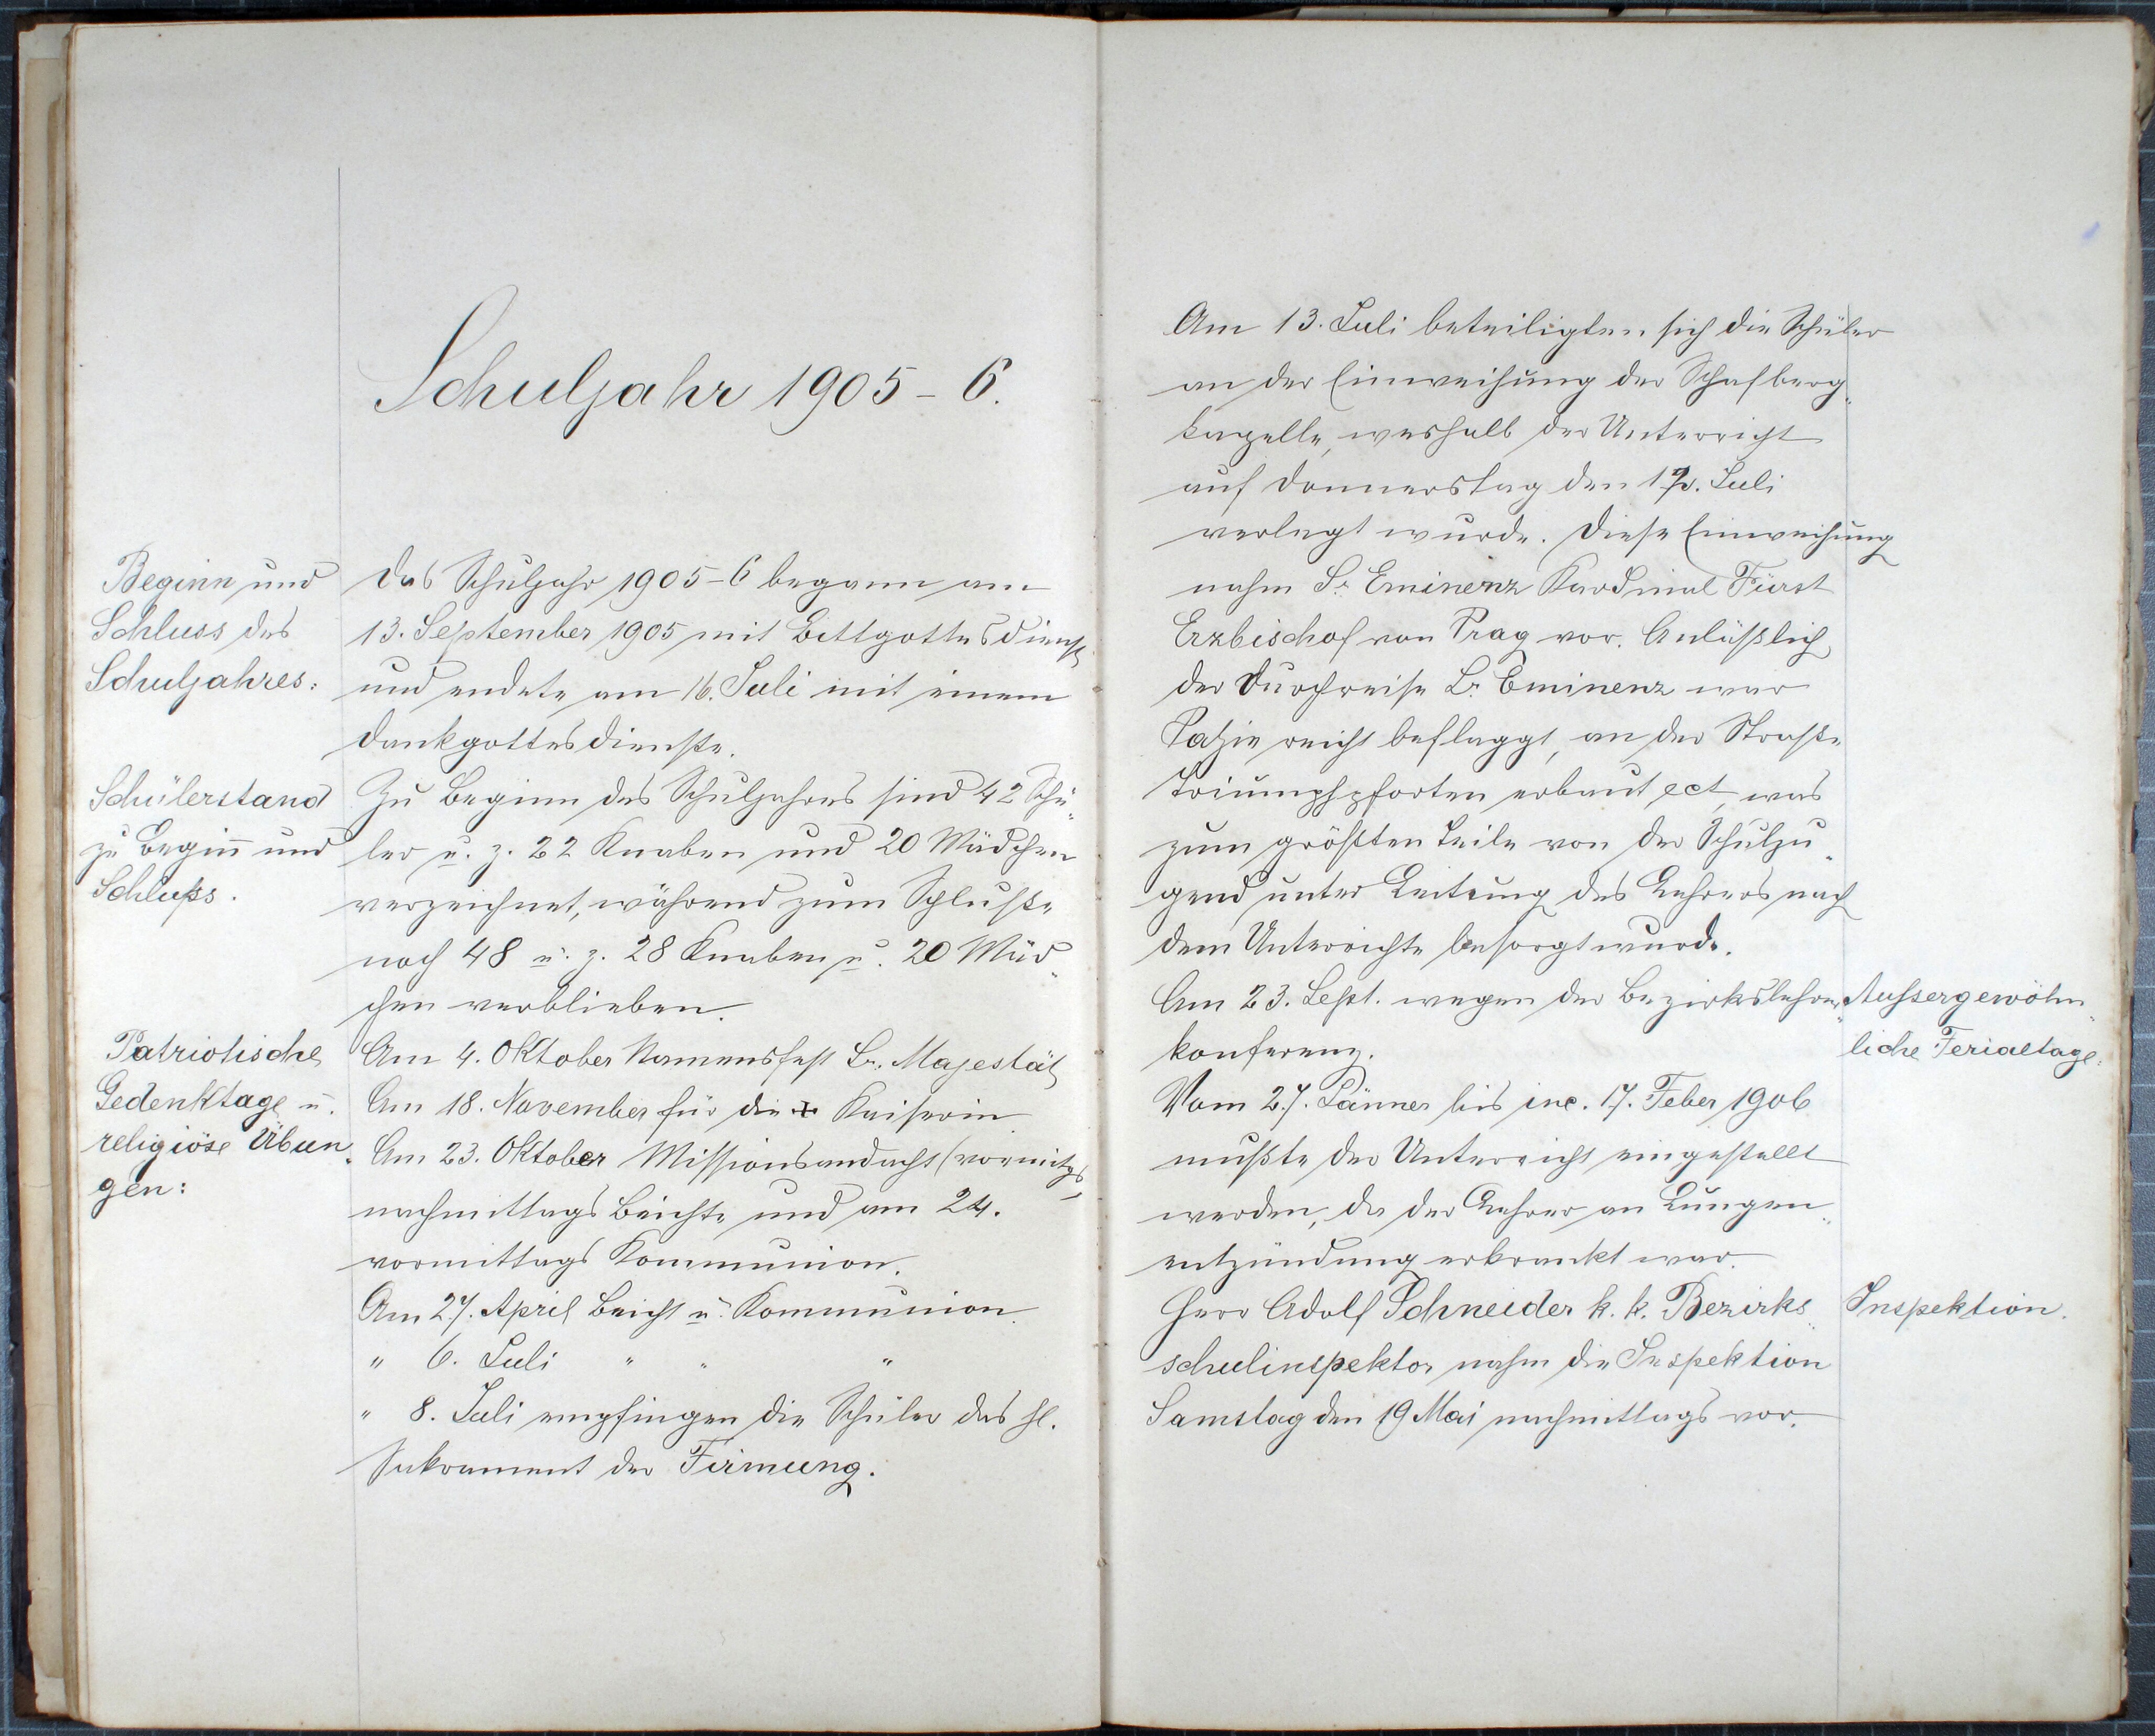 Schuljahr 1905-6.
Beginn und
Schluss des
Schuljahres:
Das Schuljahr 1905-6 begann am
13. September 1905 mit Bittgottesdienst
und endete am 16. Juli mit einem
Dankgottesdienste.
Schülerstand
zu Beginn und
Schluss.
Zu Beginn des Schuljahres sind 42 Schü„
ler u. z. 22 Knaben und 20 Mädchen
verzeichnet, während zum Schlusse
noch 48 u. z. 28 Knaben u. 20 Mäd„
chen verblieben.
Patriotische
Gedenktage u.
religiöse Übun„
gen:
Am 4. Oktober Namensfest Sr. Majestät
Am 18. November für die + Kaiserin
Am 23. Oktober Missionsandacht (vormittgs
nachmittags Beichte und am 24.
vormittags Kommunion.
Am 27. April Beicht u. Kommunion.
" 6. Juli " " "
" 8. Juli empfingen die Schüler das hl.
Sakrament der Firmung.
Am 13. Juli beteiligten sich die Schüler
an der Einweihung der Schafberg„
kapelle, weshalb der Unterricht
auf Donnerstag den 12. Juli
verlegt wurde. Diese Einweihung
nahm Sr. Eminenz Kardinal Fürst
Erzbischof von Prag vor. Anläßlich
der Durchreise Sr. Eminenz war
reich beflaggt, an der Straße
Triumphpforten erbaut ect, was
zum größten Teile von der Schulju„
gend unter Leitung des Lehrers nach
dem Unterrichte besorgt wurde.
Am 23. Sept. wegen der Bezirkslehrer„
konferenz.
Aussergewöhn„
liche Ferialtage:
Vom 27. Jänner bis inc. 17. Feber 1906
mußte der Unterricht eingestellt
werden, da der Lehrer an Lungen„
entzündung erkrankt war.
Herr Adolf Schneider k. k. Bezirks„
schulinspektor nahm die Inspektion
Samstag den 19 Mai nachmittags vor.
Inspektion.